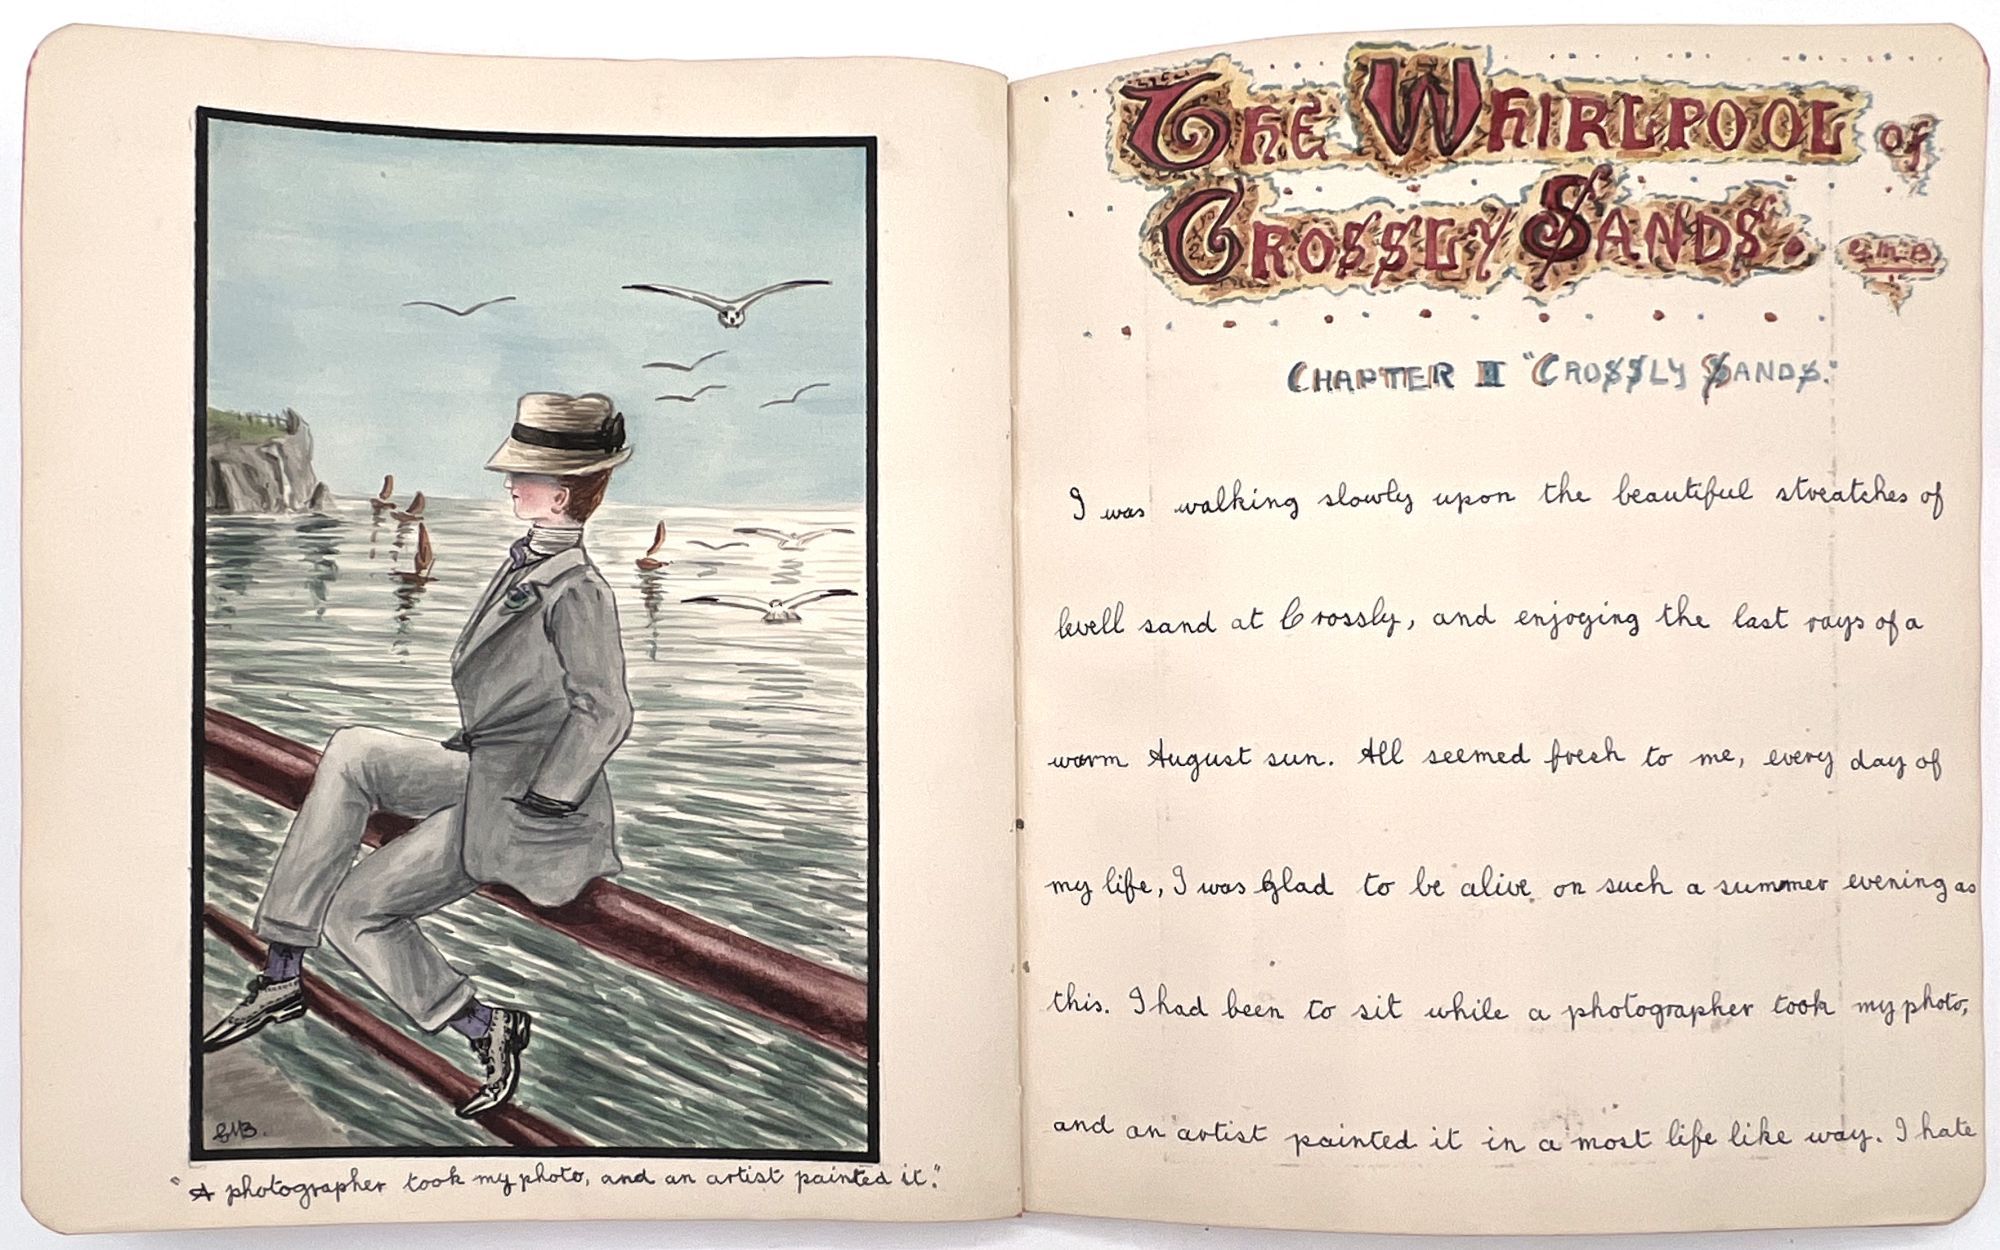 GMB.
"A photographer took my photo, and an artist painted it."
The Whirlpool of
Crossly Sands. G.M.B
Chapter II "Crossly Sands."
I was walking slowly upon the beautiful streatches of
levell sand at Crossly, and enjoying the last rays of a
warm August sun. All seemed fresh to me, every day of
my life, I was glad to be alive on such a summer evening as
this. I had been to sit while a photographer took my photo,
and an artist painted it in a most life like way. I hate